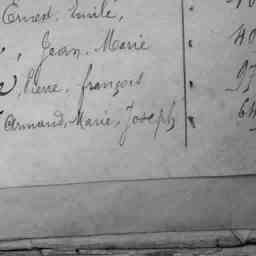 Ernest, Emile,
, Jean, Marie 40
Pierre, françois 97
Armand, Marie, Joseph 64